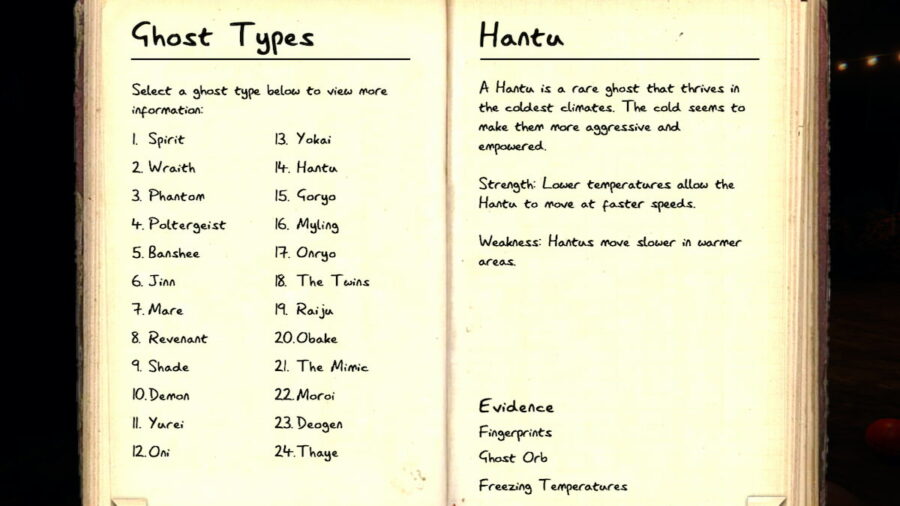 Ghost Types
Select a ghost type below to view more
information:
1. Spirit
2. Wraith
3. Phantom
4. Poltergeist
5. Banshee
6. Jinn
7. Mare
8. Revenant
9. Shade
10. Demon
11. Yurei
12. Oni
13. Yokai
14. Hantu
15. Goryo
16. Myling
17. Onryo
18. The Twins
19. Raiju
20. Obake
21. The Mimic
22. Moroi
23. Deogen
24. Thaye
Hantu
A Hantu is a rare ghost that thrives in
the coldest climates. The cold seems to
make them more aggressive and
empowered.
Strength: Lower temperatures allow the
Hantu to move at faster speeds.
Weakness: Hantus move slower in warmer
areas.
Evidence
Fingerprints
Ghost Orb
Freezing Temperatures